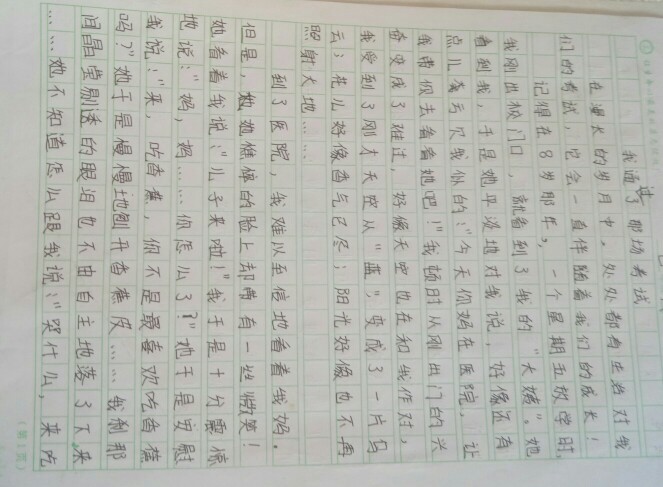 我读了那场考试
在漫长的岁月中，处处都有生活对我
们的考试，它会一直伴随着我们的成长！
记得在8岁那年，一个星期五放学时，
我刚出校门口，就看到了我的“大嫂”。她
看到我，于是她平淡地对我说，好像还有
点儿有亏欠我似的：“今天你妈在医院，让
我带你去看看她吧！”我顿时从刚出门的兴
奋变成了难过，好像天空也在和我作对，
我受到了刚才天空从“蓝”变成了一片乌
云；花儿好像香气已尽；阳光好像也不再
照射大地……
到了医院，我难以至信地看着我妈。
但是，她那憔悴的脸上却带有一丝微笑！
她看着我说：“儿子来啦！”我于是十分震惊
地说：“妈，妈……你怎么了？”她于是安慰
我说：“来，吃香蕉，你不是最喜欢吃香蕉
吗？”她于是慢慢地剥开香蕉皮……我那
间晶莹剔透的眼泪也不由自主地落了下来
……她不知道怎么跟我说：“哭什么，来吃
（第1页）